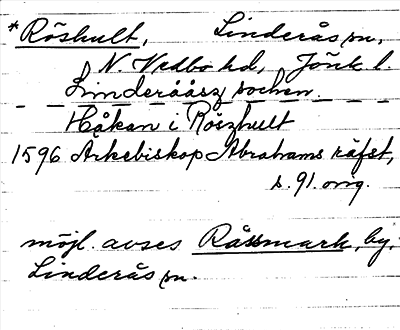 *Röshult, Linderås sn,
N. Vedbo hd, Jönk l.
Linderåås sochen.
Håkan i Röszhult
1596 Arkebiskop Abrahams räfst,
s. 91. orig.
möjl. avses Råssmark, by,
Linderås sn.